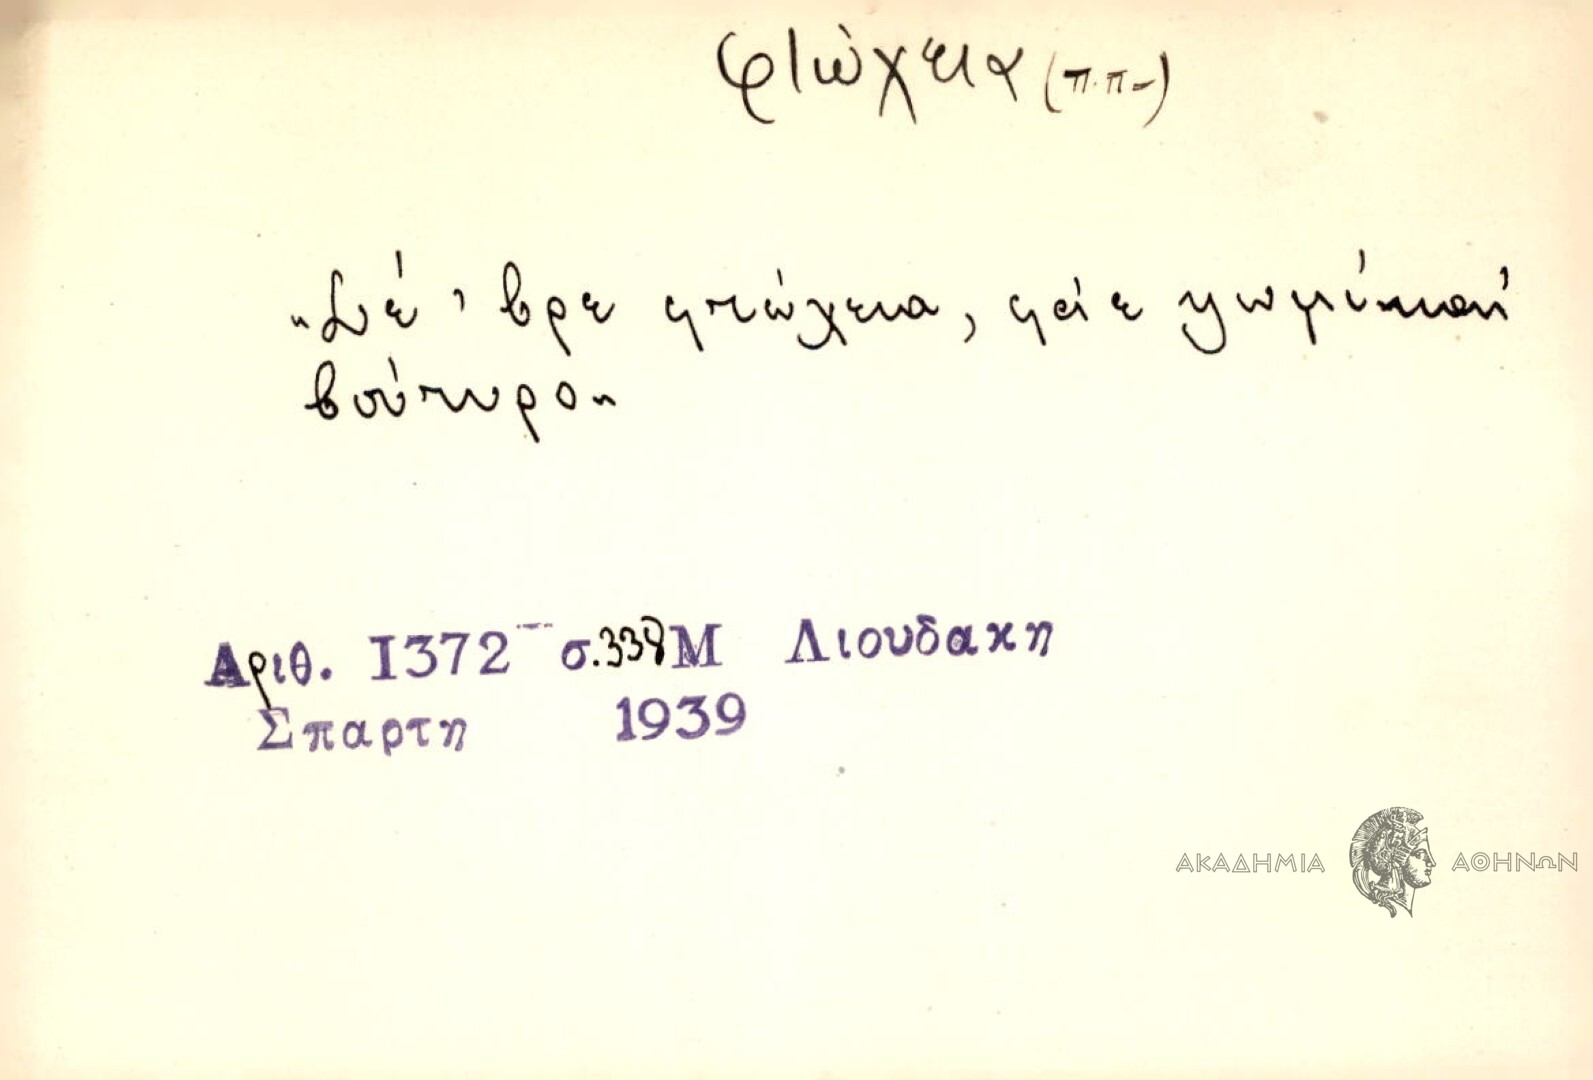 φτώχεια (π.π-)
βρε φτώχεια, φάε ψωμί καί
βούτυρο"
Αριθ. 1372 σ.338 Μ Λιουδακη
Σπαρτη 1939
ΑΚΑΔΗΜΙΑ ΑΘΗΝΩΝ